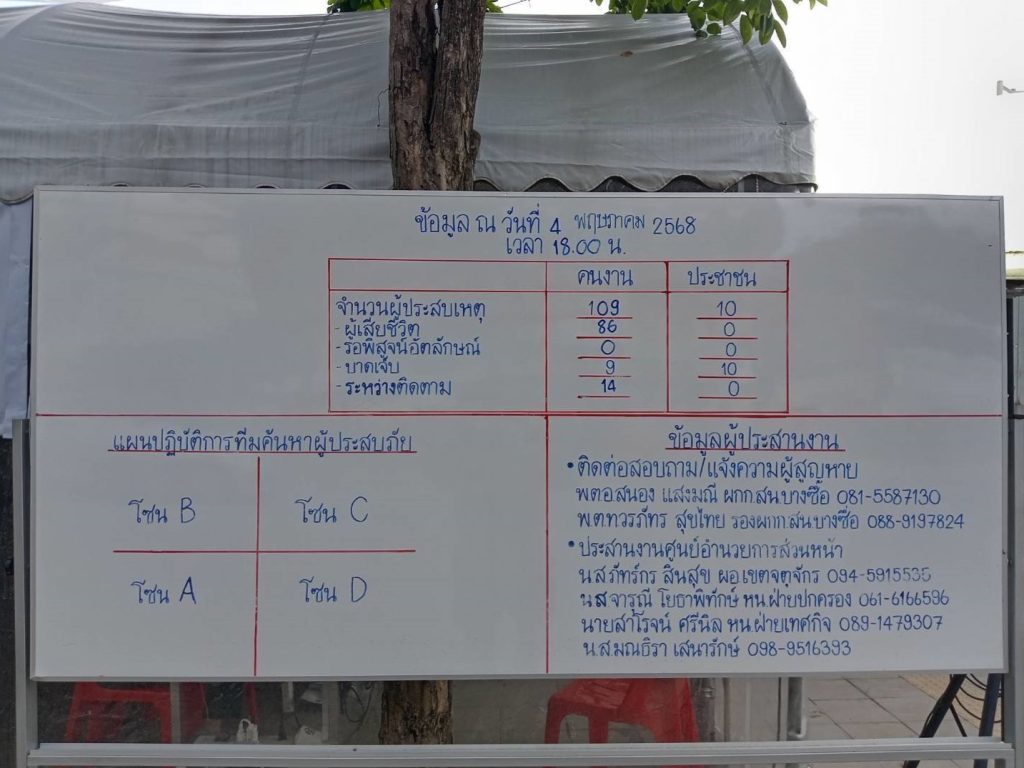 ข้อมูล ณ วันที่ 4 พฤษภาคม 2568
เวลา 18.00 น.
คนงาน ประชาชน
จำนวนผู้ประสบเหตุ 109 10
- ผู้เสียชีวิต 86 0
- รอพิสูจน์อัตลักษณ์ 0 0
- บาดเจ็บ 9 10
- ระหว่างติดตาม 14 0
แผนปฏิบัติการทีมค้นหาผู้ประสบภัย
โซน B โซน C
โซน A โซน D
ข้อมูลผู้ประสานงาน
• ติดต่อสอบถาม/แจ้งความผู้สูญหาย
พตอสนอง แสงมณี ผกก.สน.บางซื่อ 081-5587130
พ.ต.ทวรภัทร สุขไทย รองผกก.สน.บางซื่อ 088-9197824
• ประสานงานศูนย์อำนวยการส่วนหน้า
น.ส.ภัทร์กร สินสุข ผอ.เขตจตุจักร 094-5915535
น.ส.จารุณี โยธาพิทักษ์ หน.ฝ่ายปกครอง 061-6166596
นายสาโรจน์ ศรีนิล หน.ฝ่ายเทศกิจ 089-1479307
น.ส.มณธิรา เสนารักษ์ 098-9516393